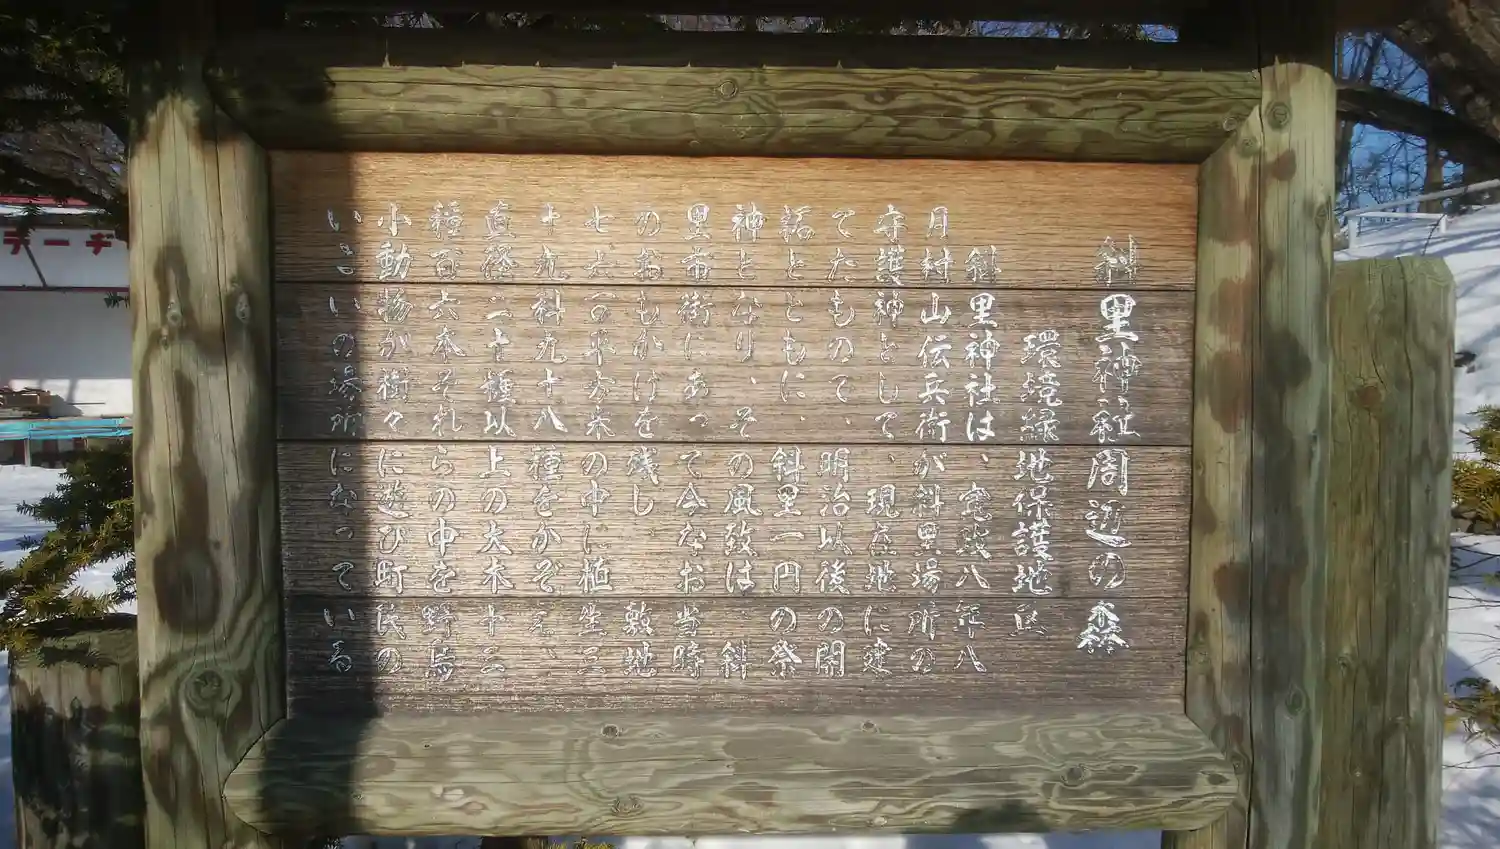 斜里神社周辺の森
環境緑地保護地区
斜里神社は、寛政八年八
月村山伝兵衛が斜里場所の
守護神として、現在地に建
てたもので、明治以後の開
拓とともに、斜里一円の祭
神となり、その風致は、斜
里市街にあって今なお当時
のおもかげを残し、敷地
七 平方米の中に植生三
十九科九十八種をかぞえ、
直径二十糎以上の大木十三
種百六本それらの中を野鳥
小動物が樹々に遊び町民の
いこいの場所になっている
テーヂ